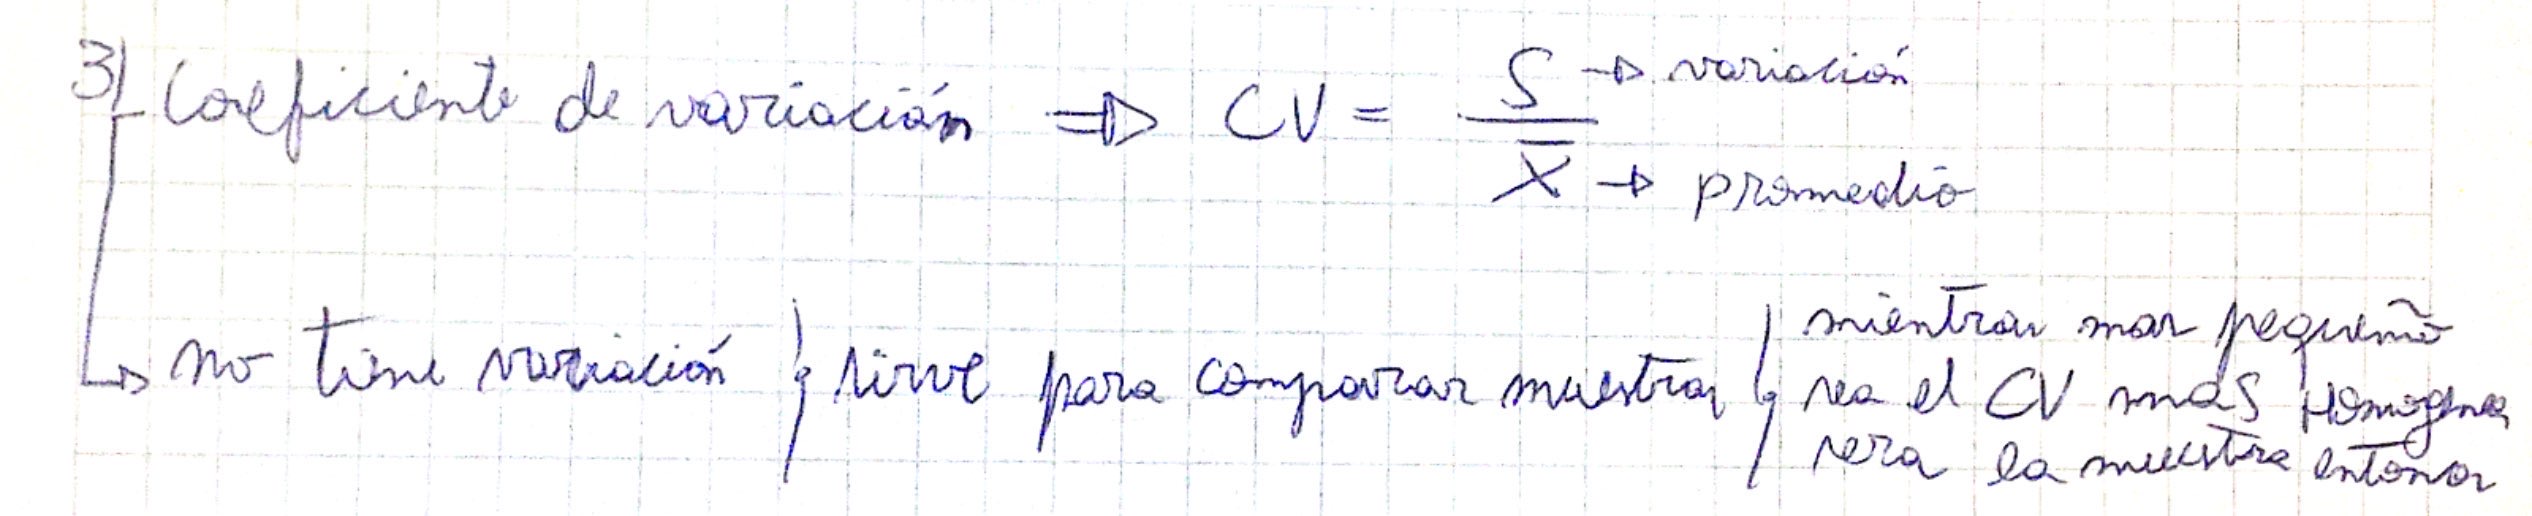 3) Coeficiente de variación ⇒ CV = S / X̄
S → variación
X̄ → promedio
↳ no tiene variación } sirve para comparar muestras } mientras mas pequeño
sea el CV mas Homogenea
sera la muestra entonces